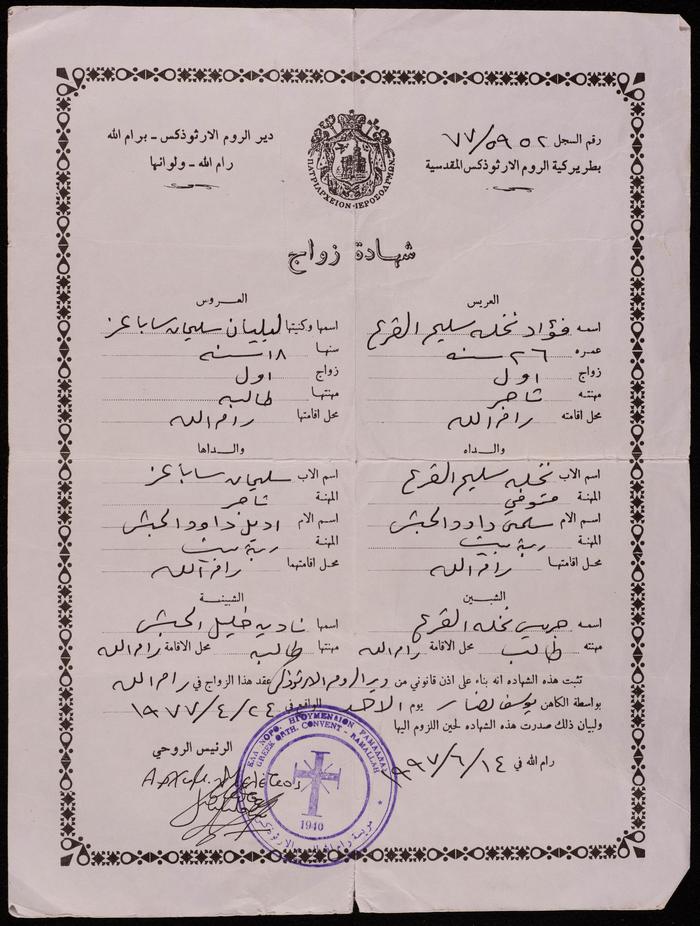 رقم السجل ٧٧/٥٩٥٢
بطريركية الروم الارثوذكس المقدسية
دير الروم الارثوذكس - برام الله
رام الله - ولوائها
ΠΑΤΡΙΑΡΧΕΙΟΝ · ΙΕΡΟΣΟΛΥΜΩΝ
شهادة زواج
العريس
اسمه فؤاد نخله سليم القرع
عمره ٢٦ سنه
زواج اول
مهنته تاجر
محل اقامته رام الله
والداه
اسم الاب نخله سليم القرع
المهنة متوفي
اسم الام سلمى داود الحبش
المهنة ربة بيت
محل اقامتها رام الله
الشبين
اسمه جريس نخله القرع
مهنته طالب محل الاقامة رام الله
العروس
اسمها وكنيتها ليليان سليمان سابا عز
سنها ١٨ سنه
زواج اول
مهنتها طالبه
محل اقامتها رام الله
والداها
اسم الاب سليمان سابا عز
المهنة تاجر
اسم الام اديل داود الحبش
المهنة ربة بيت
محل اقامتها رام الله
الشبينة
اسمها ناديه خليل الحبش
مهنتها طالبه محل الاقامة رام الله
تثبت هذه الشهاده انه بناء على اذن قانوني من دير الروم الارثوذكس عقد هذا الزواج في رام الله
بواسطة الكاهن يوسف نصار يوم الاحد الواقع في ١٩٧٧/٤/٢٤
ولبيان ذلك صدرت هذه الشهاده لحين اللزوم اليها
رام الله في ١٩٩٧/٦/١٤
الرئيس الروحي
Αρχιμ. Μελέτιος
ΕΛΛ. ΟΡΘ. ΗΓΟΥΜΕΝΕΙΟΝ ΡΑΜΑΛΛΑΣ
GREEK ORTH. CONVENT - RAMALLAH
1940